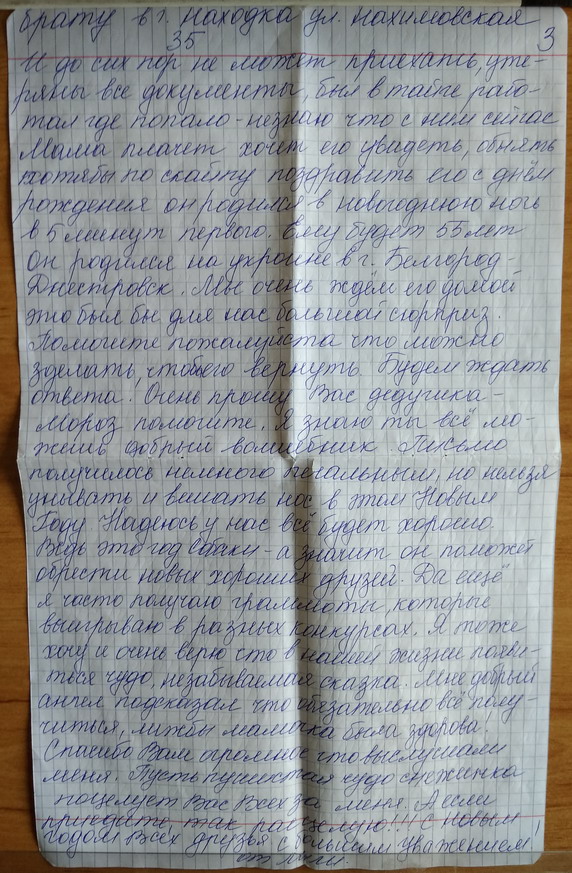 брату в г. Находка ул. Нахимовская
35 3
И до сих пор не может приехать, уте-
ряны все документы, был в тайге рабо-
тал где попало - незнаю что с ним сейчас
Мама плачет хочет его увидеть, обнять
хотябы по скайпу поздравить его с днём
рождения он родился в новогоднюю ночь
в 5 минут первого. Ему будет 55 лет
Он родился на украине в г. Белгород-
Днестровск. Мы очень ждём его домой
это был бы для нас большой сюрприз.
Помогите пожалуйста что можно
зделать, чтобы его вернуть. Будем ждать
ответа! Очень прошу Вас дедушка-
мороз помогите. Я знаю ты всё мо-
жешь добрый волшебник. Письмо
получилось немного печальным, но нельзя
унывать и вишать нос в этом Новым
Году. Надеюсь у нас всё будет хорошо.
Ведь это год Собаки - а значит он поможет
обрести новых хороших друзей. Да ещё
я часто получаю граммоты, которые
выигрываю в разных конкурсах. Я тоже
хочу и очень верю что в нашей жизни появи-
тся чудо, незабываемая сказка. Мне добрый
ангел подсказал что обязательно всё полу-
читься, лижбы мамочка была здорова!
Спасибо Вам огромное что выслушали
меня. Пусть пушистая чудо снежинка
поцелует Вас Всех за меня. А если
приедити, так расцелую!!! С новым
годом Всех друзья с большим уважением!
от